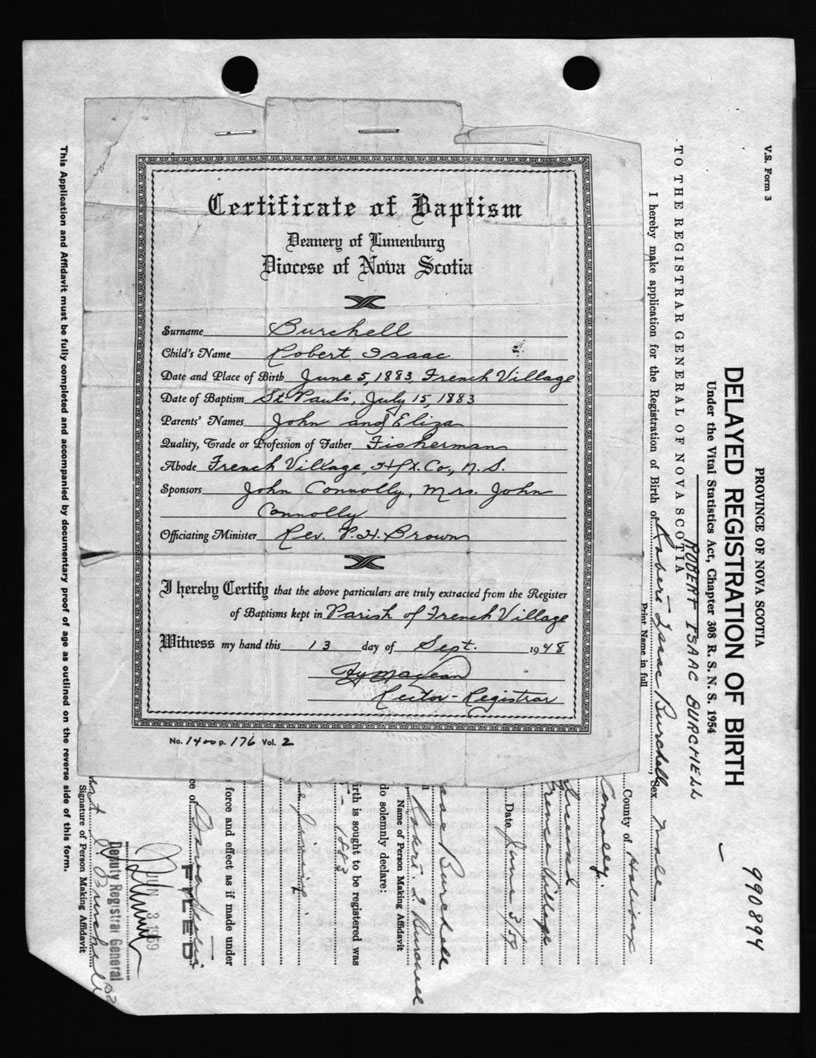 Certificate of Baptism
Deanery of Lunenburg
Diocese of Nova Scotia
Surname Burchell
Child's Name Robert Isaac
Date and Place of Birth June 5, 1883, French Village
Date of Baptism St Paul's, July 15, 1883
Parents' Names John and Eliza
Quality, Trade or Profession of Father Fisherman
Abode French Village, Hfx. Co., N. S.
Sponsors John Connolly, Mrs. John
Connolly
Officiating Minister Rev. P. H. Brown
I hereby Certify that the above particulars are truly extracted from the Register
of Baptisms kept in Parish of French Village
Witness my hand this 13 day of Sept. 1948
Rector-Registrar
No. 1400 p. 176 Vol. 2
V.S. Form 3
990894
PROVINCE OF NOVA SCOTIA
DELAYED REGISTRATION OF BIRTH
Under the Vital Statistics Act, Chapter 308 R. S. N. S. 1954
ROBERT ISAAC BURCHELL
TO THE REGISTRAR GENERAL OF NOVA SCOTIA
I hereby make application for the Registration of Birth of Robert Isaac Burchell Sex Male
Print Name in full
County of Halifax
Connolly.
Second
French Village
Date June 3/59
Isaac Burchell
Robert I. Burchell
Name of Person Making Affidavit
do solemnly declare:
birth is sought to be registered was
1883
force and effect as if made under
FILED
JUN 3 1959
Deputy Registrar General
Burchell
Signature of Person Making Affidavit
This Application and Affidavit must be fully completed and accompanied by documentary proof of age as outlined on the reverse side of this form.